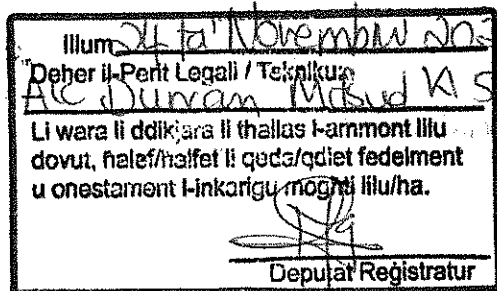 Illum 24 ta' Novembru 202
Deher il-Perit Legali / Tekniku:
Duncan
Li wara li ddikjara li tħallas l-ammont lilu
dovut, ħalef/ħalfet li qeda/qdiet fedelment
u onestament l-inkarigu mogħti lilu/ha.
Deputat Reġistratur